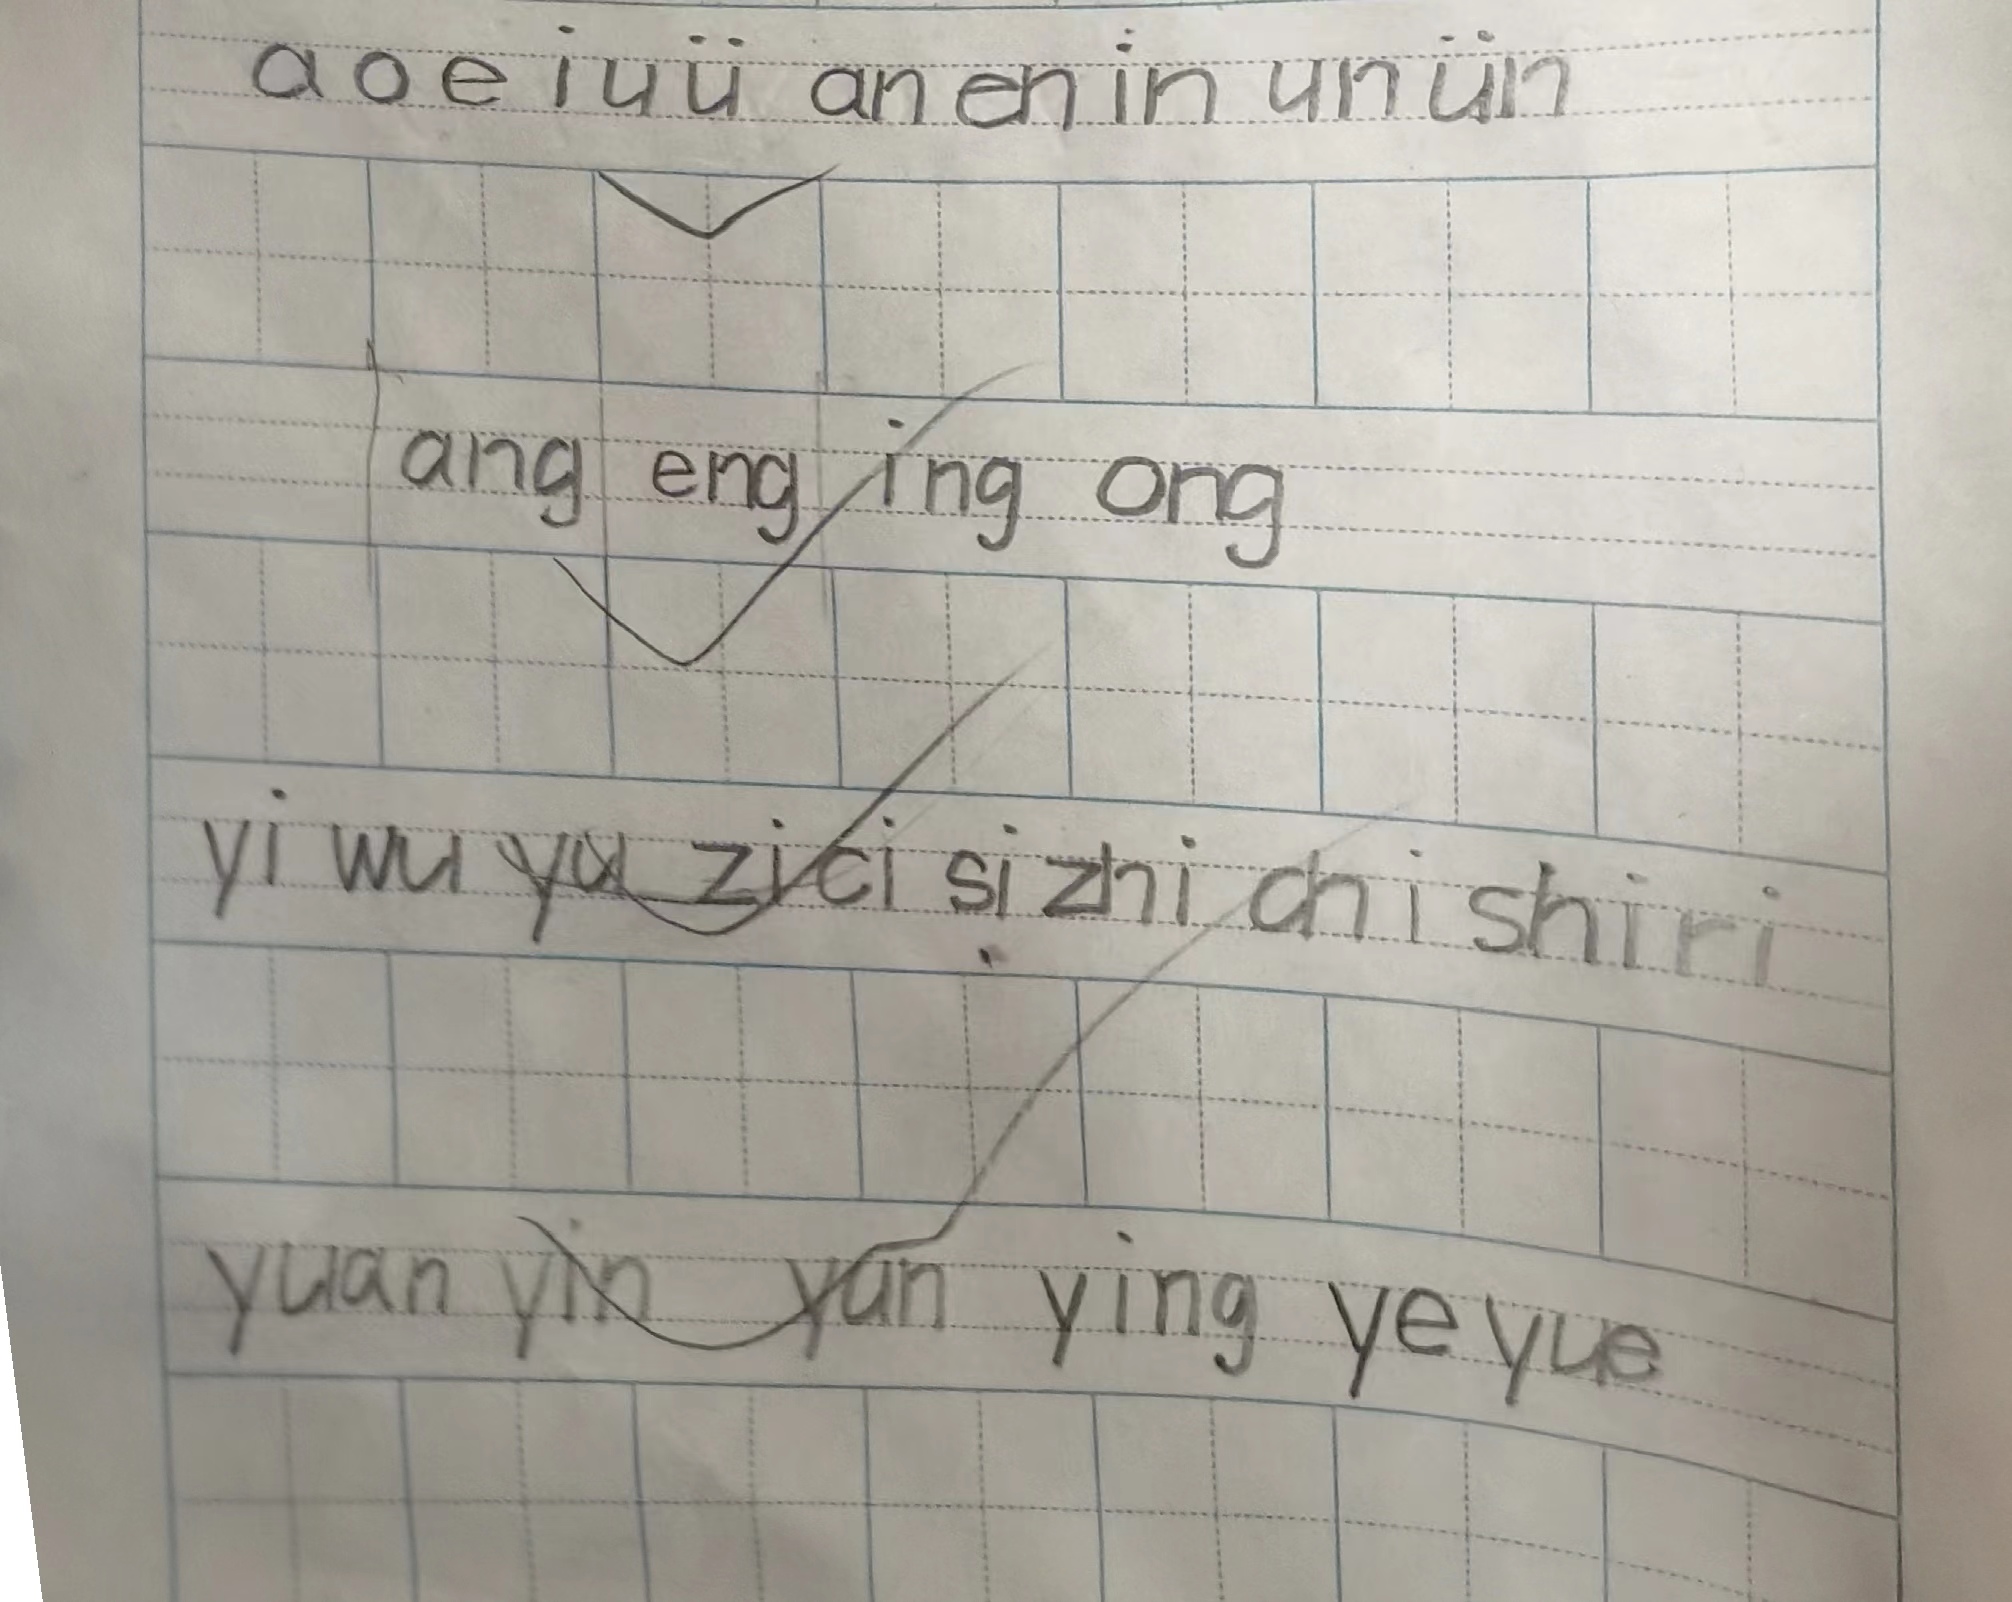 a o e i u ü an en in un ün
ang eng ing ong
yi wu yu zi ci si zhi chi shi ri
yuan yin yun ying ye yue